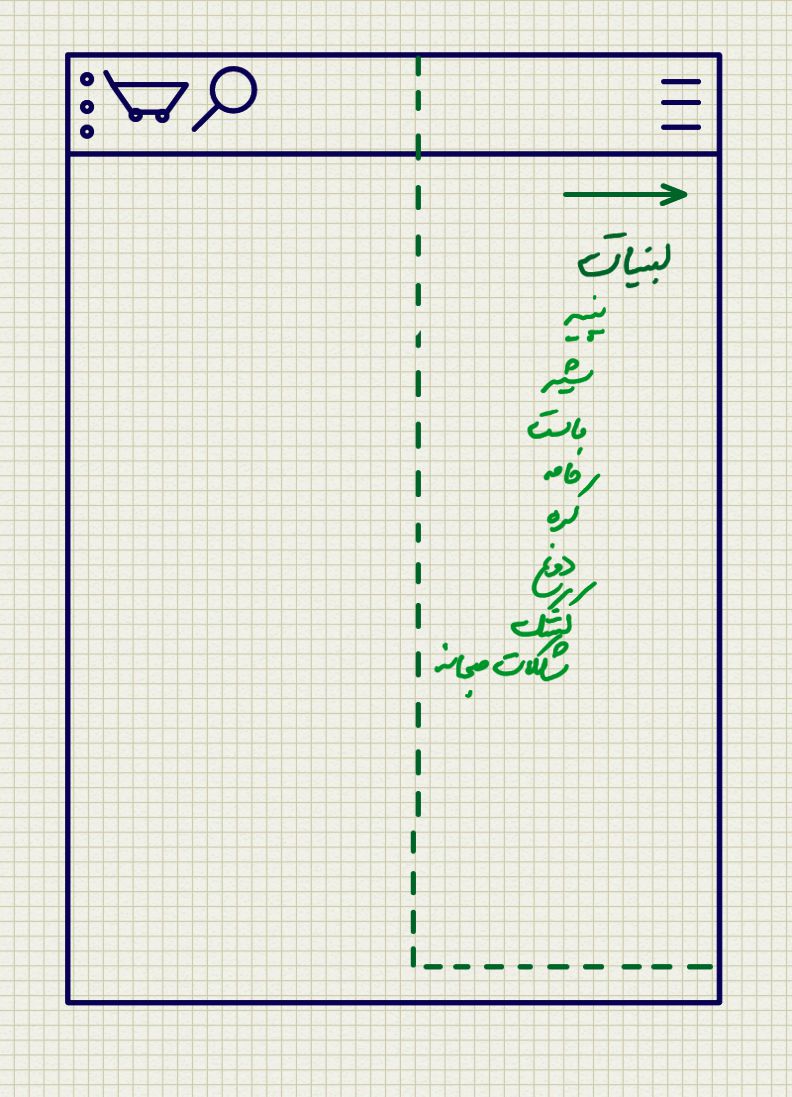 لبنیات
پنیر
شیر
ماست
خامه
کره
دوغ
کشک
شکلات صبحانه